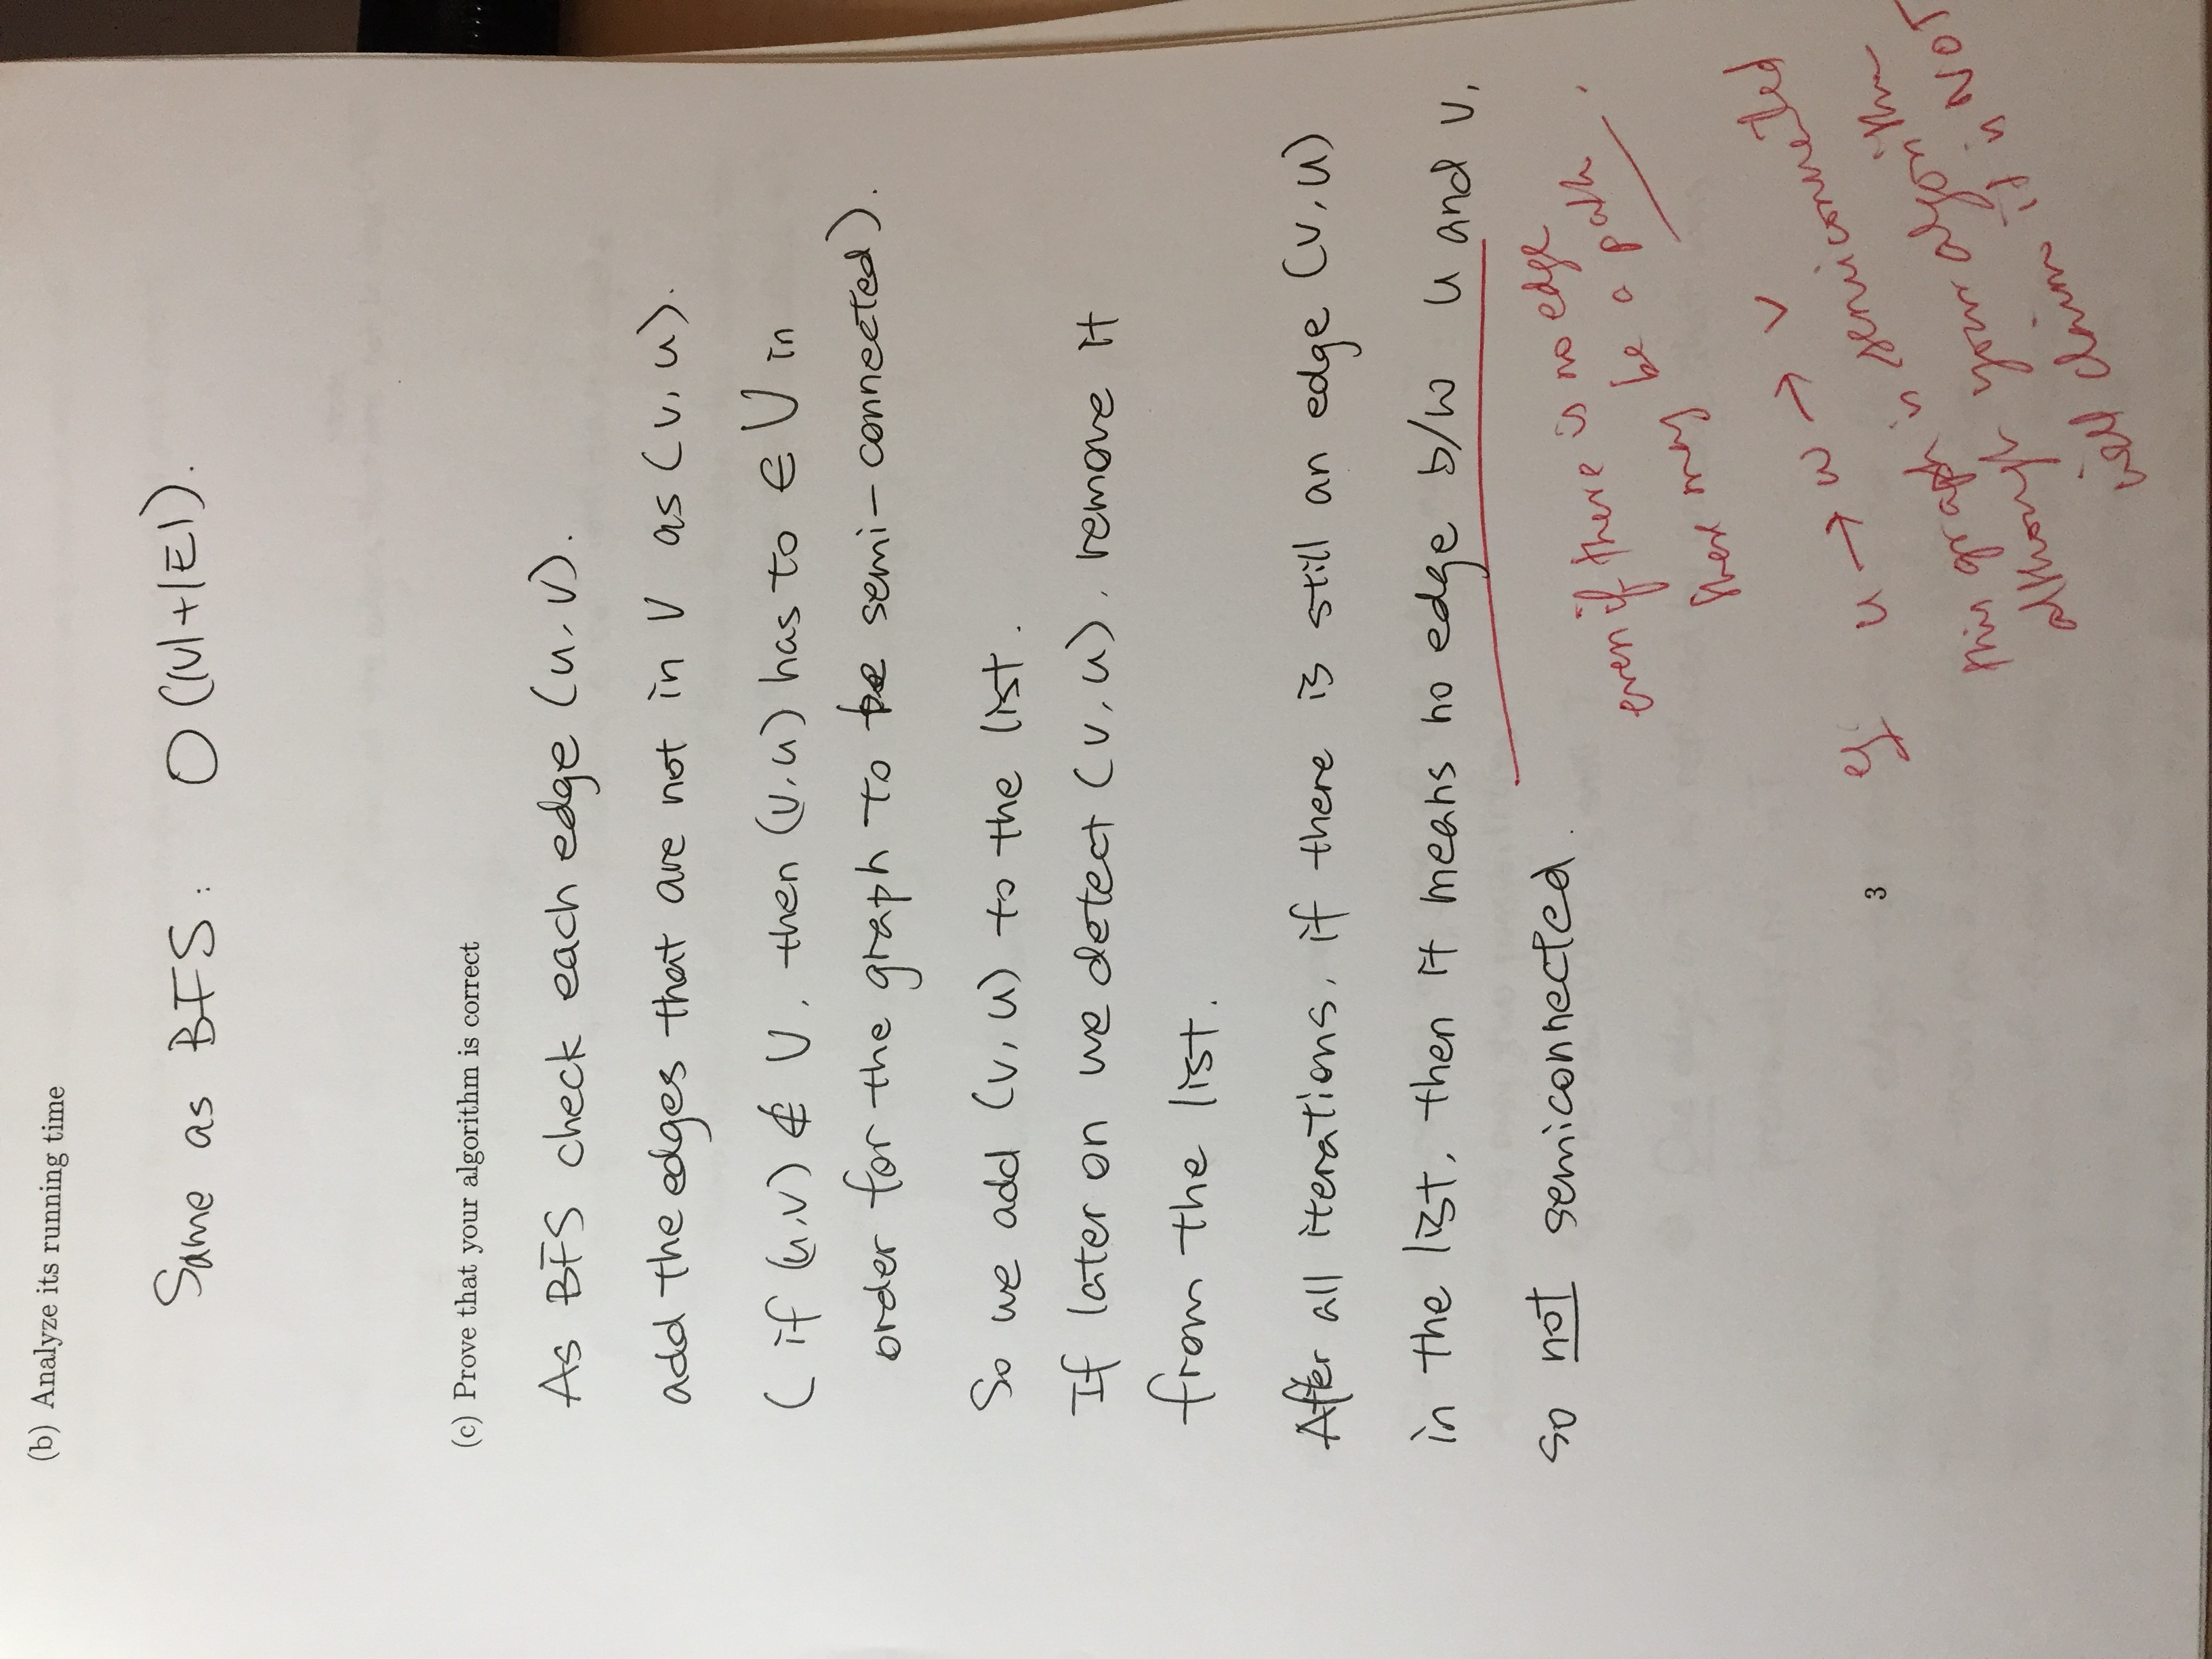 (b) Analyze its running time
Same as BFS: O(|V|+|E|).
(c) Prove that your algorithm is correct
As BFS check each edge (u, v).
add the edges that are not in V as (v, u).
( if (u,v) ∉ V, then (v,u) has to ∈ V in
order for the graph to be semi-connected).
So we add (v, u) to the list.
If later on we detect (v, u), remove it
from the list.
After all iterations, if there is still an edge (v, u)
in the list, then it means no edge b/w u and v,
so not semiconnected.
even if there is no edge
there may be a path.
eg: u → w → v
this graph is semiconnected
although your algorithm
will claim it is NOT
3